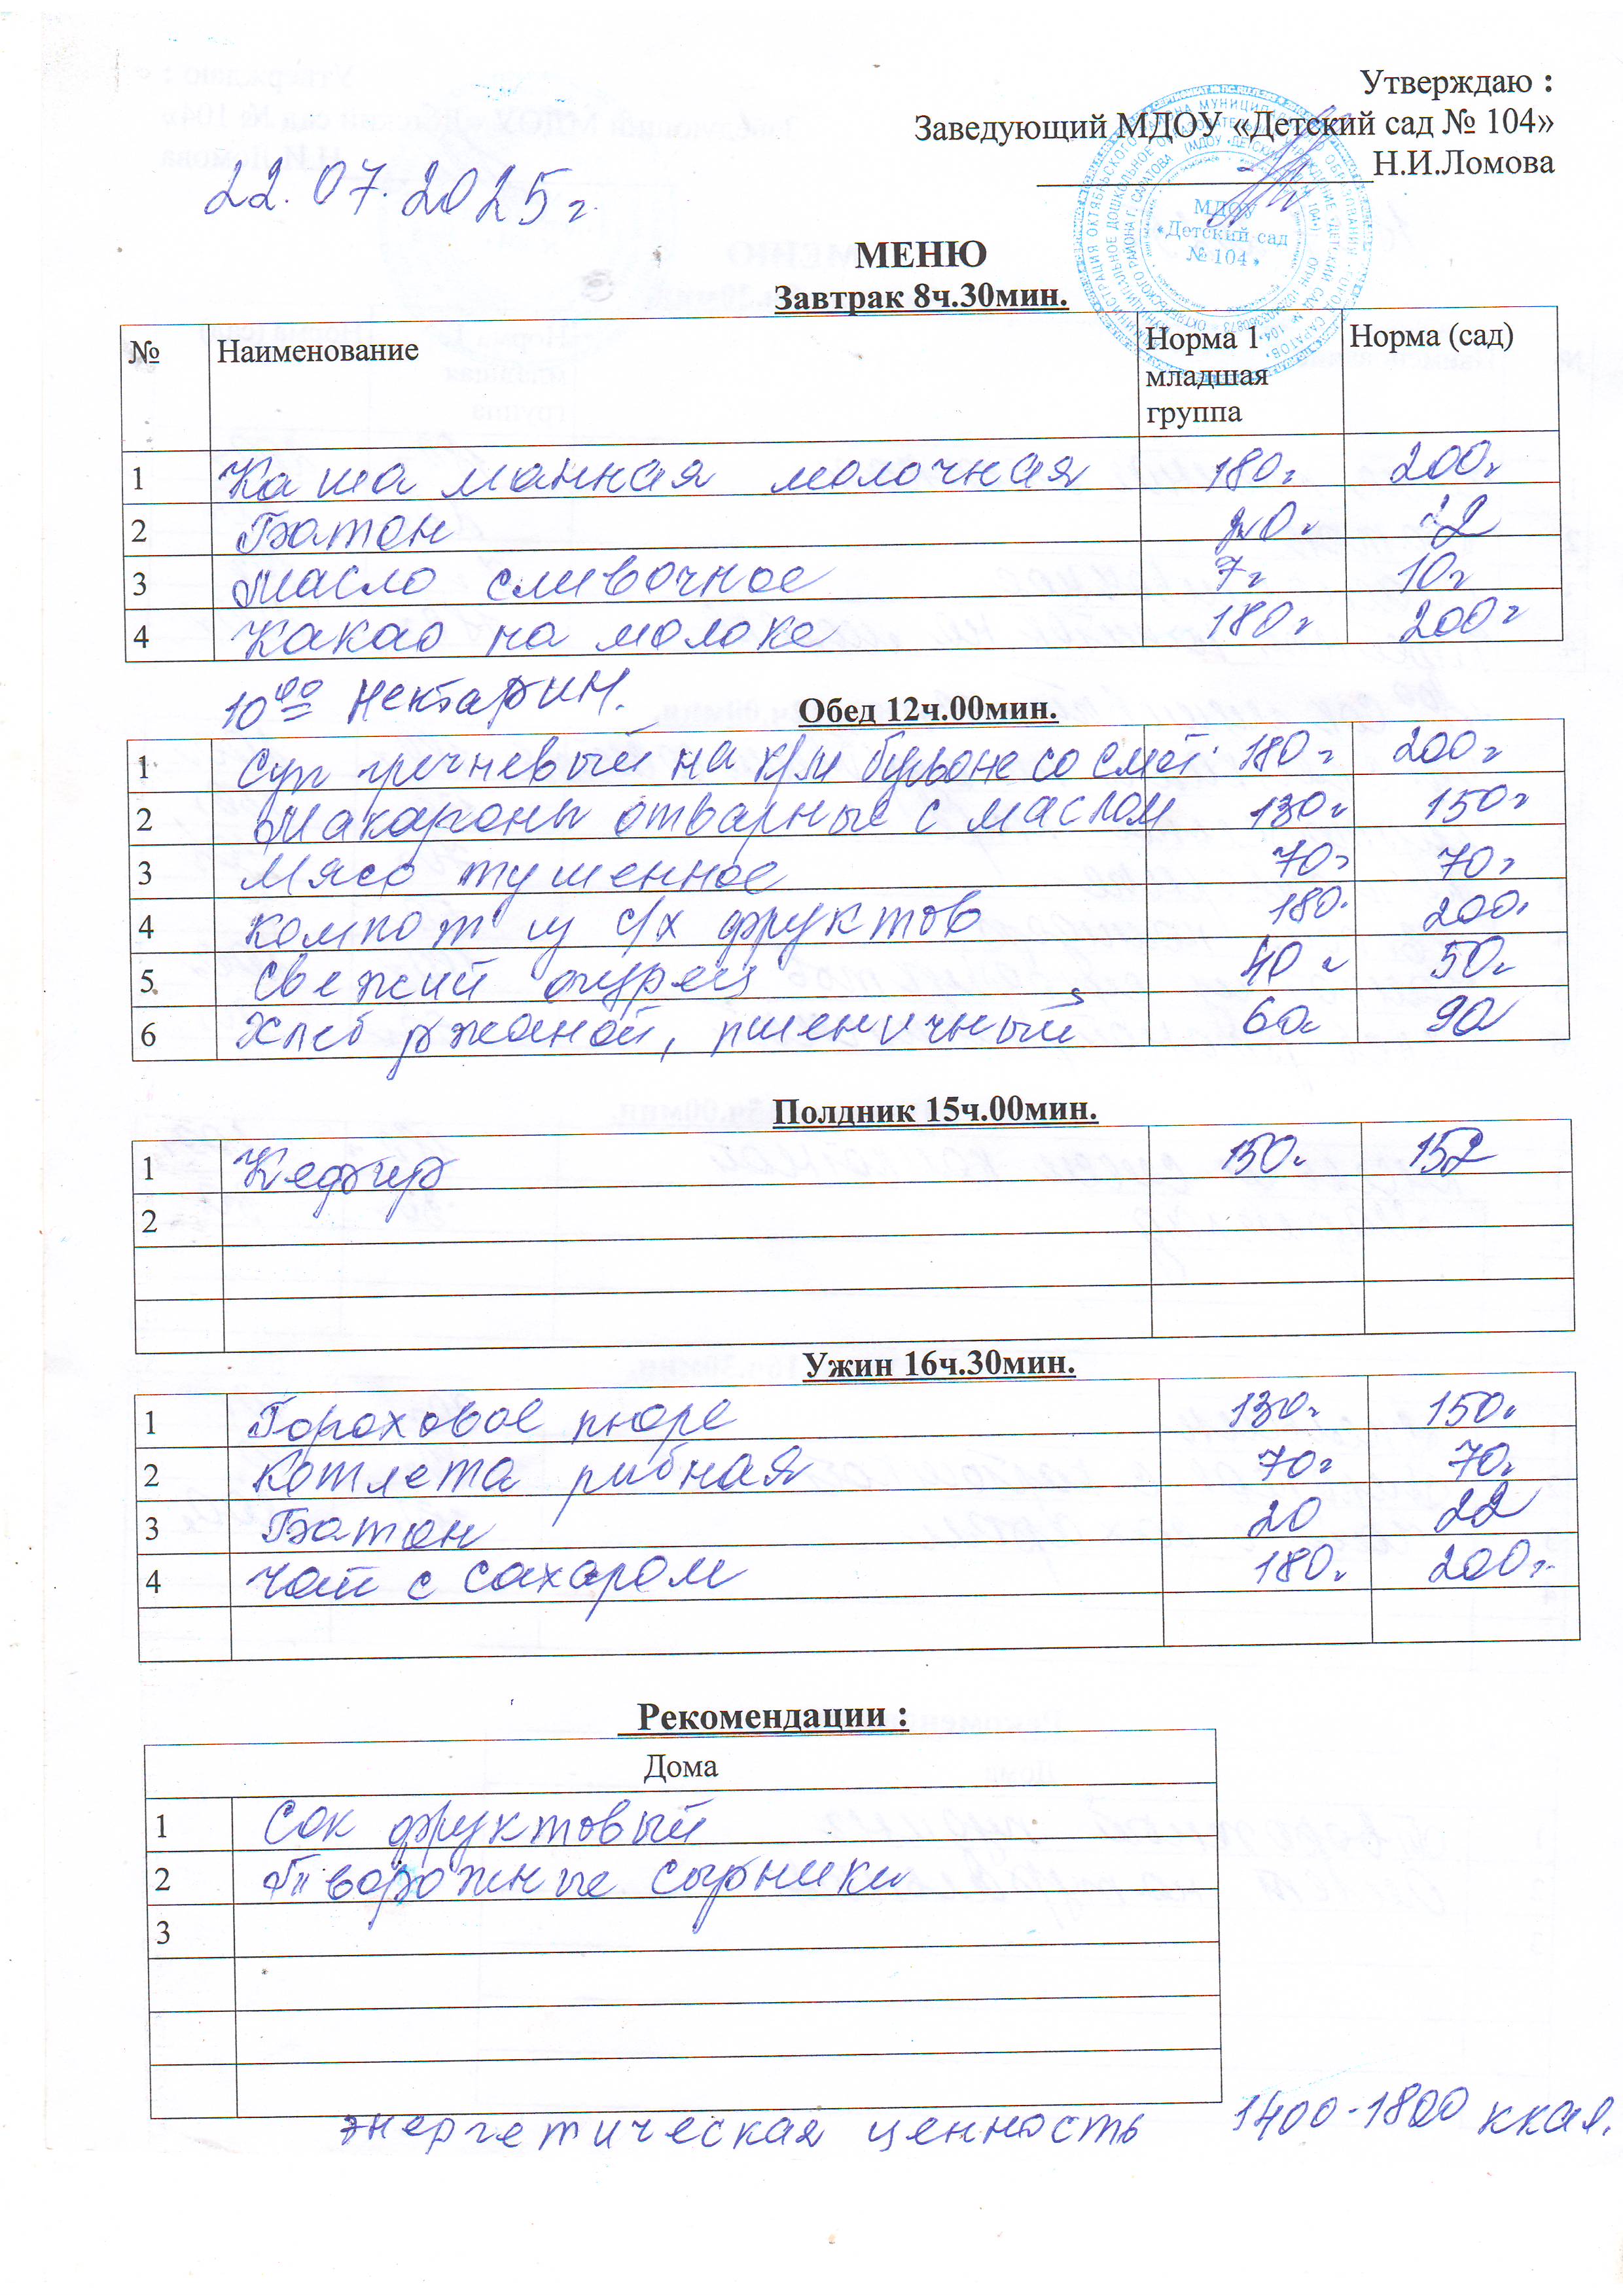 Утверждаю :
Заведующий МДОУ «Детский сад № 104»
Н.И.Ломова
22.07.2025г.
МДОУ
«Детский сад
№ 104»
МЕНЮ
Завтрак 8ч.30мин.
№ Наименование Норма 1 младшая группа Норма (сад)
1 Каша манная молочная 180г 200г
2 Батон 20г 22
3 Масло сливочное 7г 10г
4 Какао на молоке 180г 200г
10 00 Нектарин.
Обед 12ч.00мин.
1 Суп гречневый на к/м бульоне со смет. 180г 200г
2 Макароны отварные с маслом 130г 150г
3 Мясо тушенное 70г 70г
4 Компот из с/х фруктов 180г 200г
5 Свежий огурец 40г 50г
6 Хлеб ржаной, пшеничный 60г 90
Полдник 15ч.00мин.
1 Кефир 150г 152
2
Ужин 16ч.30мин.
1 Гороховое пюре 130г 150г
2 Котлета рыбная 70г 70г
3 Батон 20 22
4 Чай с сахаром 180г 200г
Рекомендации :
Дома
1 Сок фруктовый
2 Творожные сырники
3
энергетическая ценность 1400-1800 ккал.